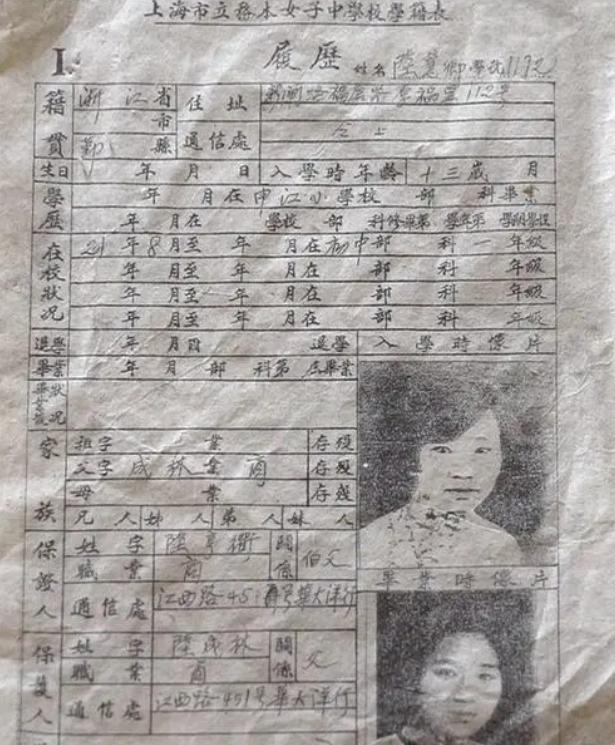 上海市立務本女子中學校學籍表
I.
履歷 姓名 陸慧卿 學號 1192
籍貫 浙江省 市 鄞縣
住址 112号
通信處 仝上
生日 年 月 日 入學時年齡 十三歲 月
學歷 年 月在 中江小學校 部 科畢業
年 月在 學校 部 科修畢第 學年第 學期學程
在校狀況 21年8月至 年 月在初中部 科一年級
年 月至 年 月在 部 科 年級
年 月至 年 月在 部 科 年級
年 月至 年 月在 部 科 年級
退學 年 月 日 退學
畢業 年 月 部 科第 屆畢業
入學時像片
畢業後狀況
家族 祖字 業 存歿
父字 成林 業 商 存歿
母 業 存歿
兄 人 姊 人 弟 人 妹 人
保證人 姓字 陸亨衢 關係 伯父
職業 商
通信處 江西路451号華大洋行
畢業時像片
保護人 姓字 陸成林 關係 父
職業 商
通信處 江西路451号華大洋行